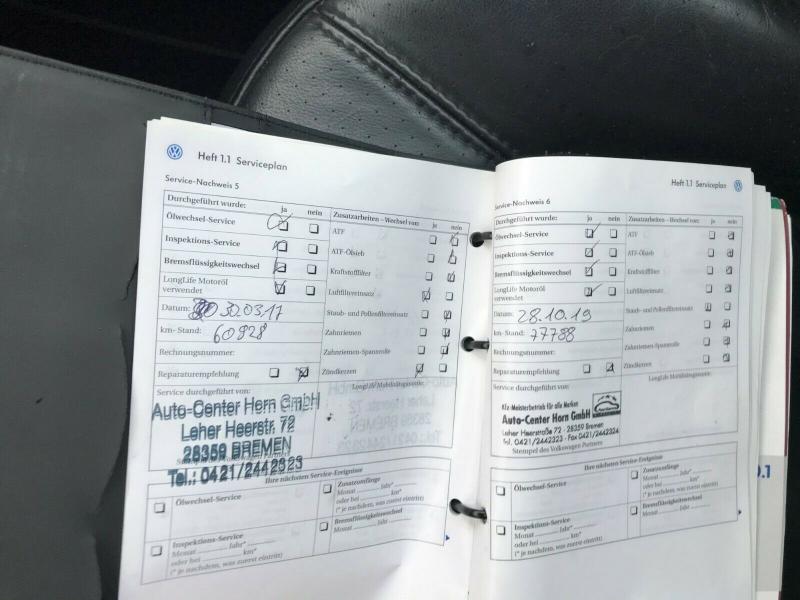 Heft 1.1 Serviceplan
Service-Nachweis 5
Durchgeführt wurde:
ja nein
Ölwechsel-Service
Inspektions-Service
Bremsflüssigkeitswechsel
LongLife Motoröl
verwendet
Datum: 30.03.17
km-Stand: 60928
Rechnungsnummer:
Reparaturempfehlung
Service durchgeführt von:
Auto-Center Horn GmbH
Leher Heerstr. 72
28359 BREMEN
Tel.: 0421/2442323
Zusatzarbeiten – Wechsel von:
ja nein
ATF
ATF-Ölsieb
Kraftstofffilter
Luftfiltereinsatz
Staub- und Pollenfiltereinsatz
Zahnriemen
Zahnriemen-Spannrolle
Zündkerzen
LongLife Mobilitätsgarantie
Ihre nächsten Service-Ereignisse
Ölwechsel-Service
Inspektions-Service
Monat Jahr*
oder bei km*
(* je nachdem, was zuerst eintritt)
Zusatzumfänge
Monat Jahr*
oder bei km*
(* je nachdem, was zuerst eintritt)
Bremsflüssigkeitswechsel
Monat Jahr
Heft 1.1 Serviceplan
Service-Nachweis 6
Durchgeführt wurde:
ja nein
Ölwechsel-Service
Inspektions-Service
Bremsflüssigkeitswechsel
LongLife Motoröl
verwendet
Datum: 28.10.19
km-Stand: 77788
Rechnungsnummer:
Reparaturempfehlung
Service durchgeführt von:
Kfz-Meisterbetrieb für alle Marken
Auto-Center Horn GmbH
Leher Heerstraße 72 · 28359 Bremen
Tel. 0421/2442323 · Fax 0421/2442324
Stempel des Volkswagen Partners
Zusatzarbeiten – Wechsel von:
ja nein
ATF
ATF-Ölsieb
Kraftstofffilter
Luftfiltereinsatz
Staub- und Pollenfiltereinsatz
Zahnriemen
Zahnriemen-Spannrolle
Zündkerzen
LongLife Mobilitätsgarantie
Ihre nächsten Service-Ereignisse
Ölwechsel-Service
Inspektions-Service
Monat Jahr*
oder bei km*
(* je nachdem, was zuerst eintritt)
Zusatzumfänge
Monat Jahr*
oder bei km*
(* je nachdem, was zuerst eintritt)
Bremsflüssigkeitswechsel
Monat Jahr